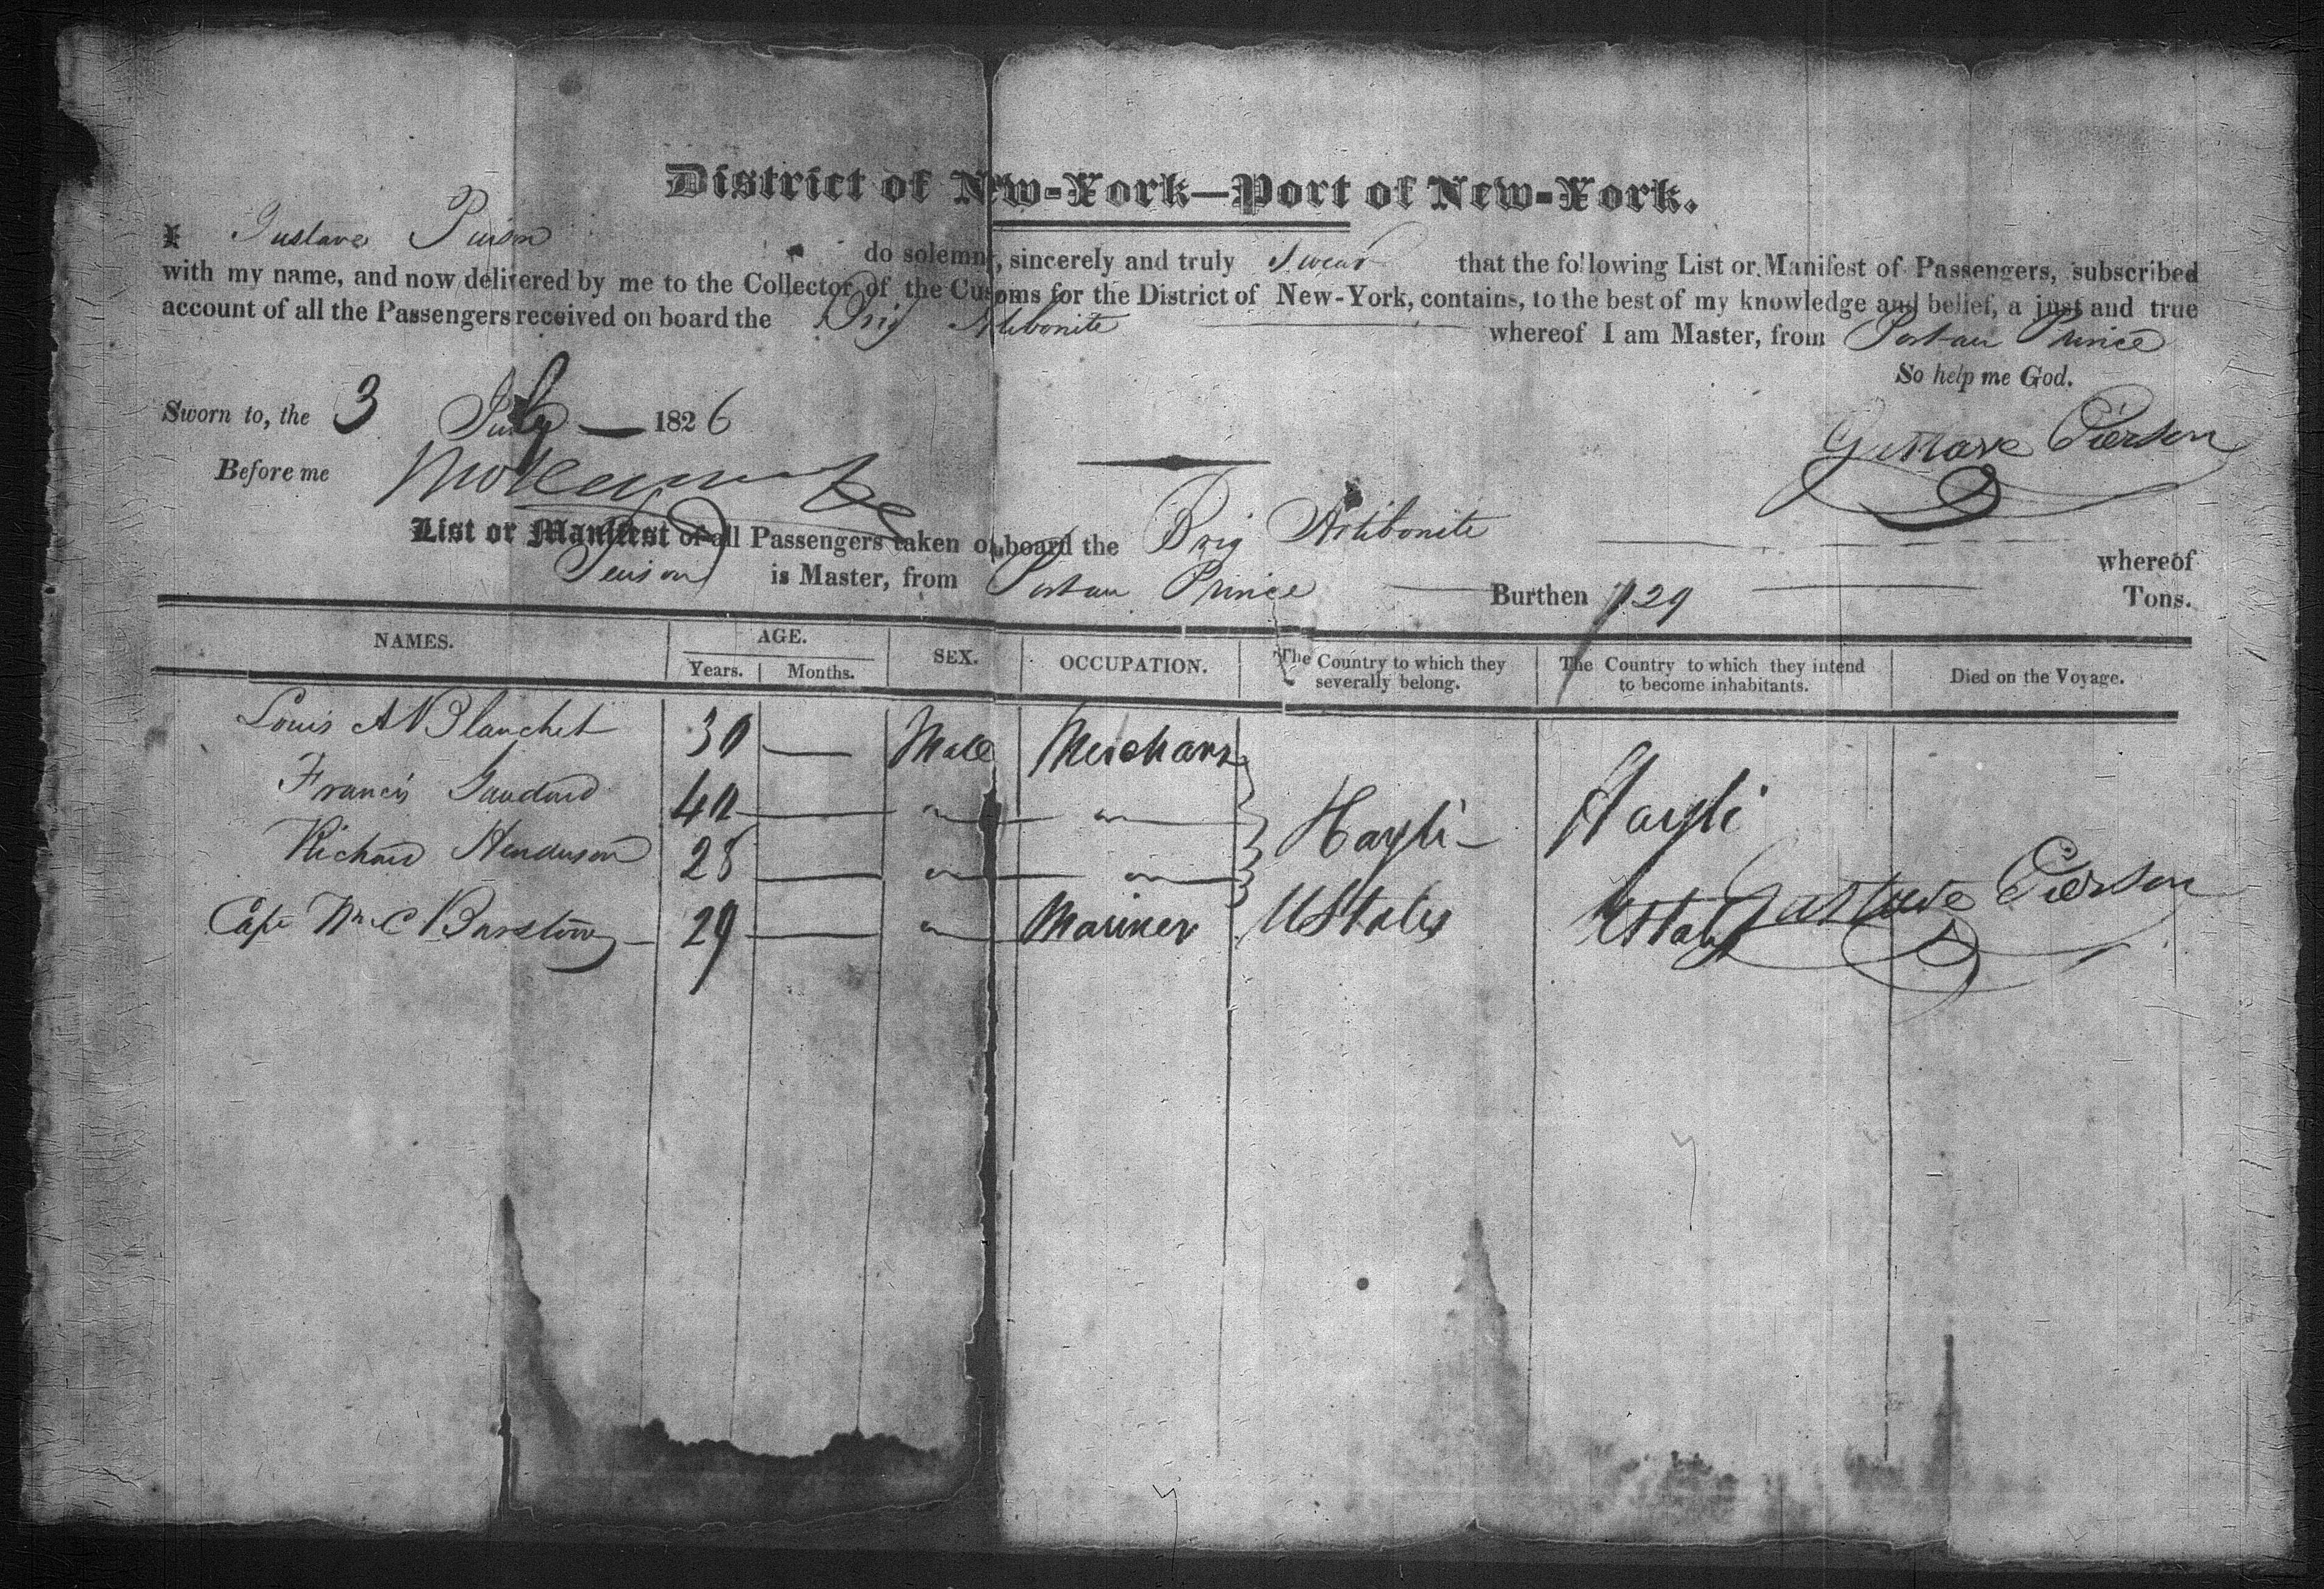 District of New-York—Port of New-York.
I Gustave Pierson do solemnly, sincerely and truly Swear that the following List or Manifest of Passengers, subscribed
with my name, and now delivered by me to the Collector of the Customs for the District of New-York, contains, to the best of my knowledge and belief, a just and true
account of all the Passengers received on board the Brig Artibonite whereof I am Master, from Port au Prince
So help me God.
Sworn to, the 3 July 1826
Gustave Pierson
Before me
List or Manifest of all Passengers taken on board the Brig Artibonite whereof
Pierson is Master, from Port au Prince Burthen 129 Tons.
NAMES. AGE. SEX. OCCUPATION. The Country to which they severally belong. The Country to which they intend to become inhabitants. Died on the Voyage.
Years. Months.
Louis A Blanchet 30 — Male Merchant
Francis 40 — " "
Hayti Hayti
Richard Henderson 28 — " "
Capt Wm C Barstow 29 — " Mariner UStates UStates
Gustave Pierson